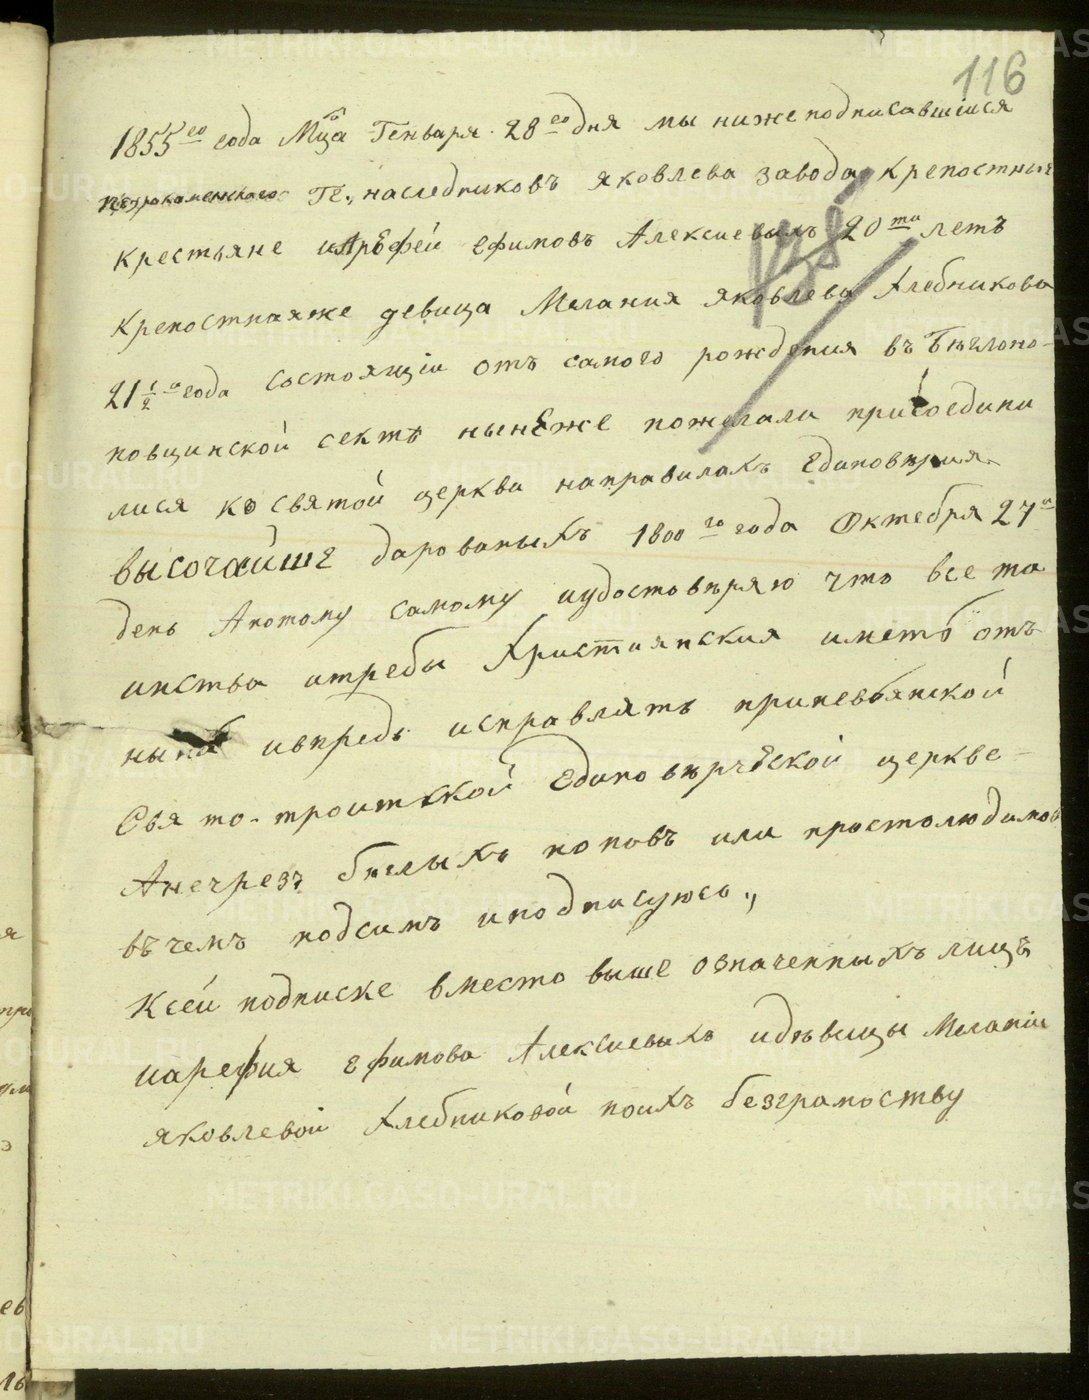 116
1855го года Мца Генваря 28го дня мы нижеподписавшiися
Гг. наследниковъ яковлева завода крепостныя
крестьяне иАрЕфей ефимовъ Алексиевыхъ 20ти летъ
крепостнаяже девица Мелания яковлева Хлебникова
21 1/2 года состоящiи отъ самого рождения въ Бѣглопо-
повщинской сектѣ нынЕже пожелали присоедини
лися ко святой церкви направилахъ Единоверия
высочайше дарованыхъ 1800го года Октебря 27го
день Апотому самому иудостовѣряю что все та
инства итребы Християнския иметь отъ
ныне ивпредь исправлять приневьянской
Свято-троиткой Единовѣрчеекой церкве-
Анечрезъ бѣглыхъ поповъ или простолюдимов
въчемъ подсимъ иподписуюсь.,
Ксей подписке вместо выше означенныхъ лицъ
иарефия ефимова Алексиевыхъ идѣвицы Мелании
яковлевой Хлебниковой поихъ безграмоству
METRIKI.GASO-URAL.RU